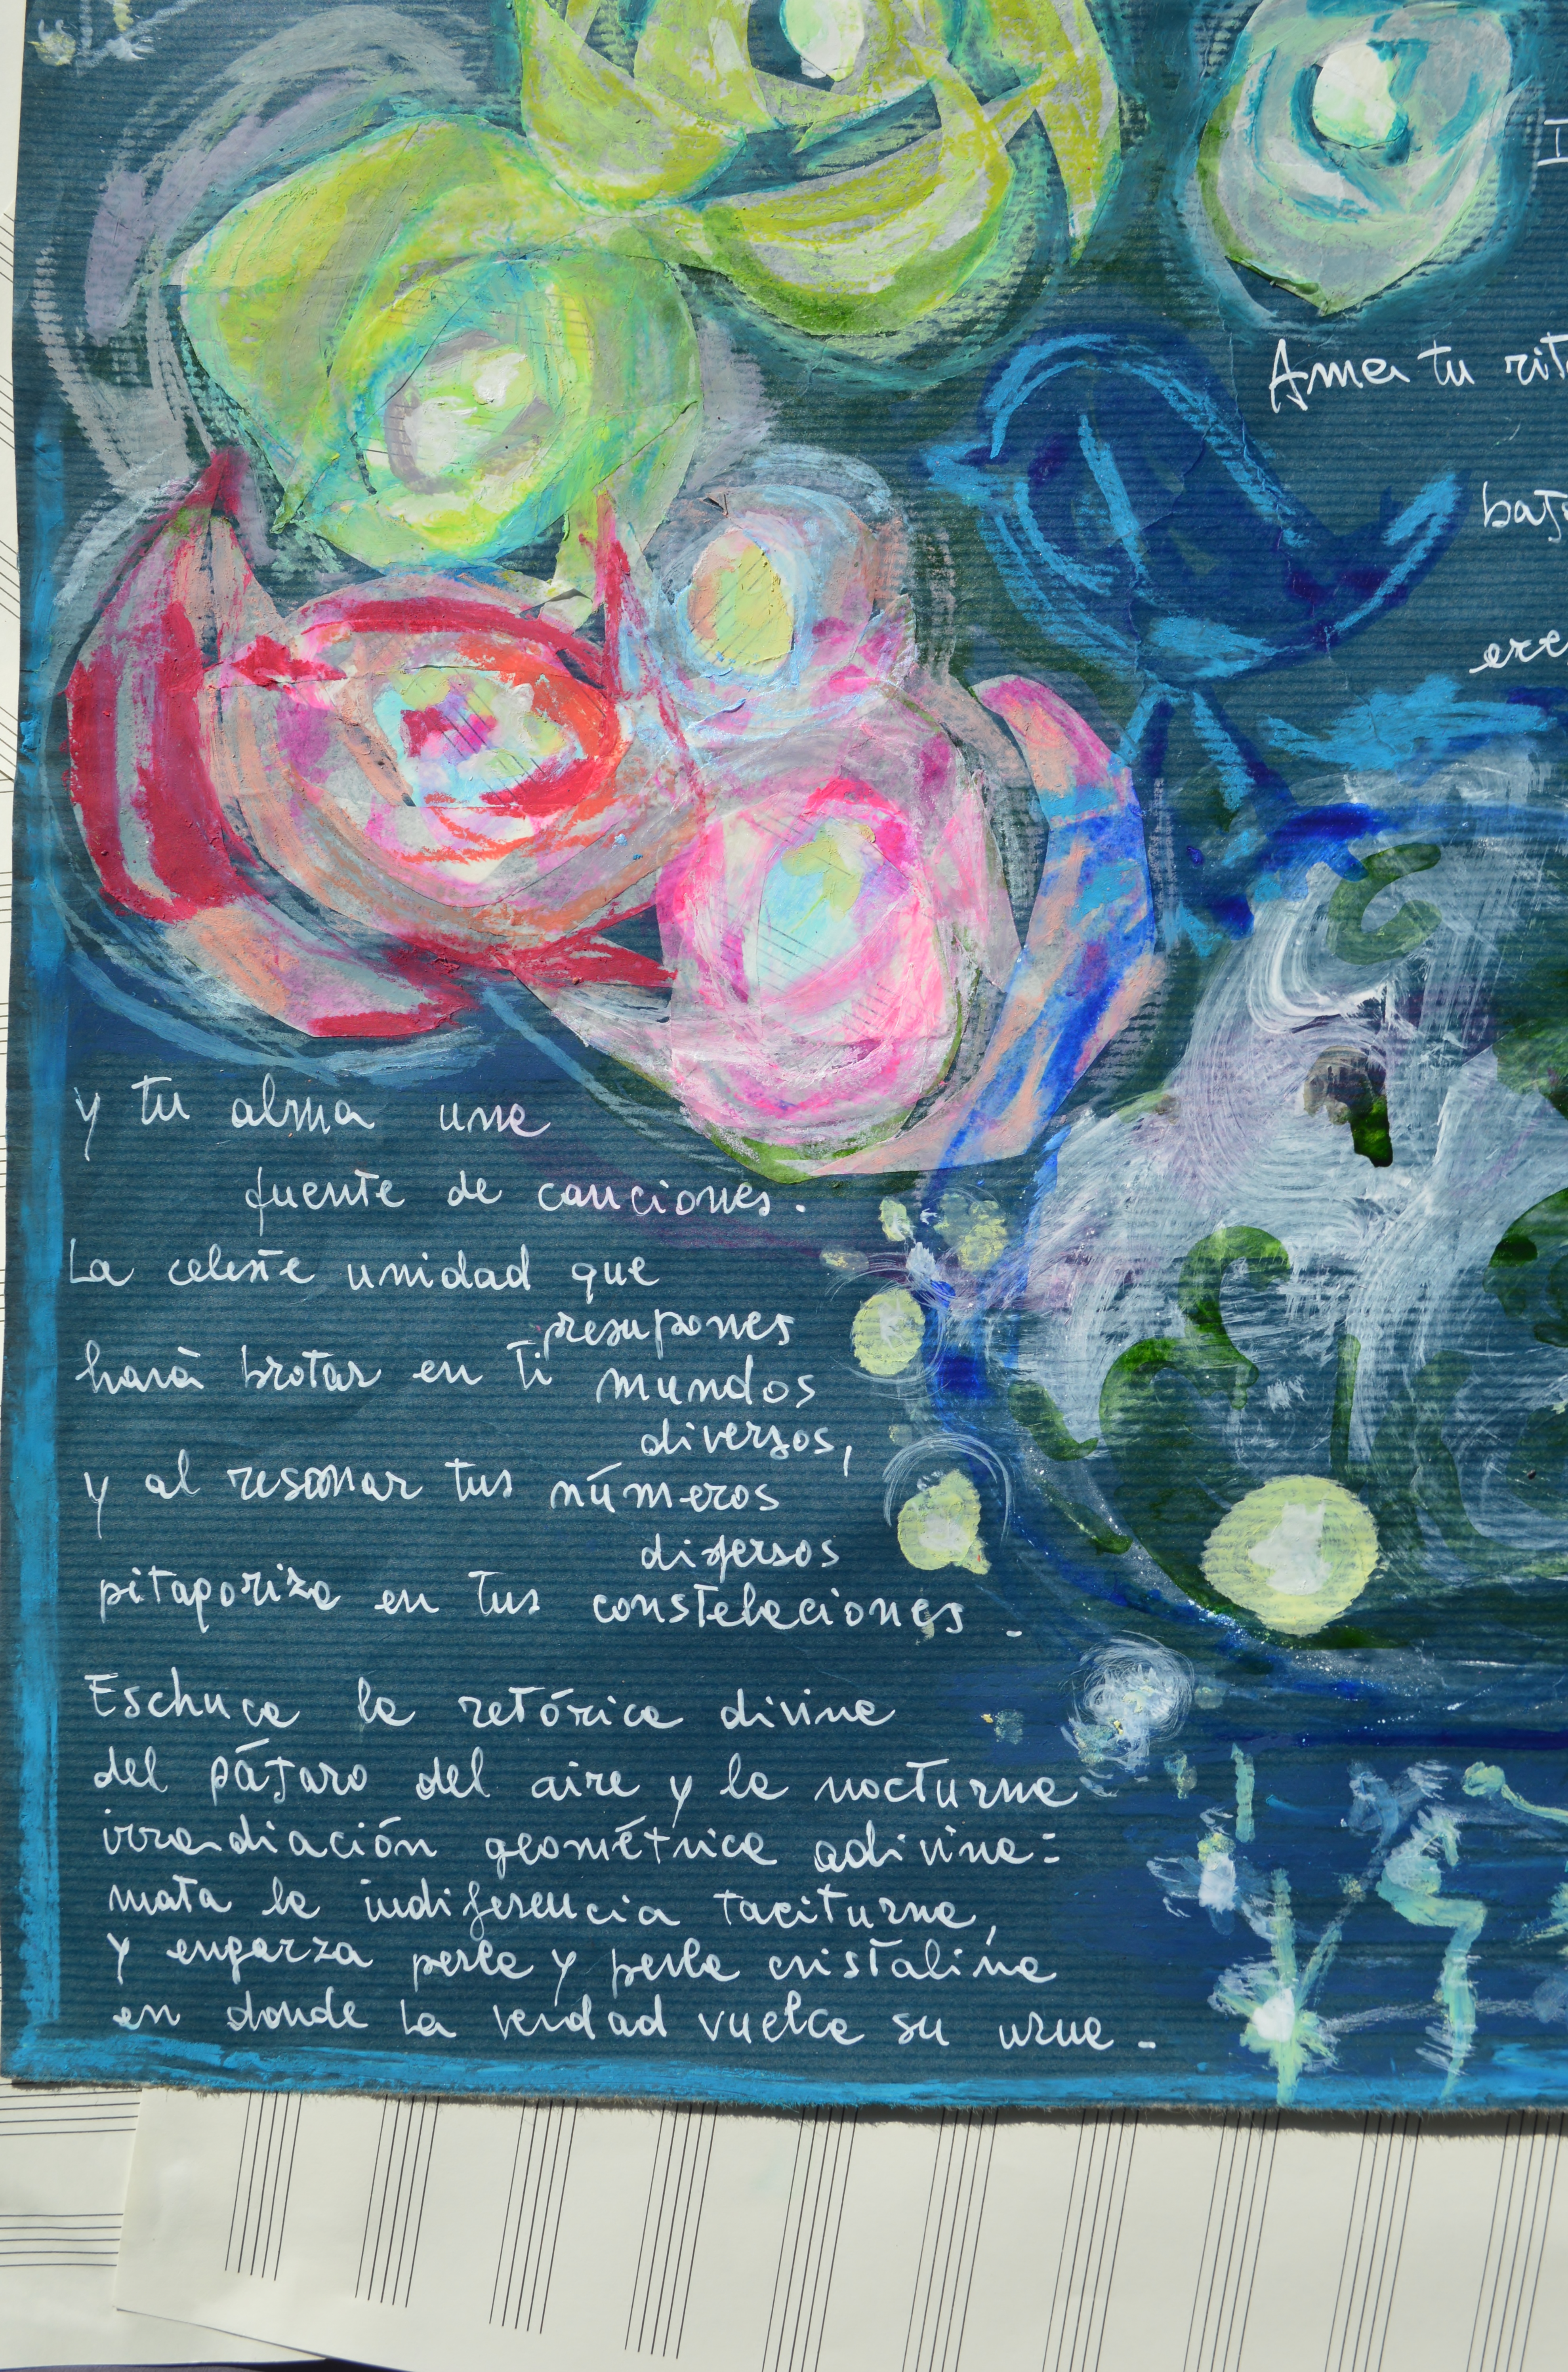 Ama tu rit
baj
ere
y tu alma una
fuente de canciones.
La celeste unidad que
presupones
hará brotar en ti mundos
diversos,
y al resonar tus números
difersos
pitagoriza en tus constelaciones.
Eschuca la retórica divina
del pájaro del aire y la nocturna
irradiación geométrica adivina:
mata la indiferencia taciturna,
y engarza perla y perla cristalina
en donde la verdad vuelca su urna.